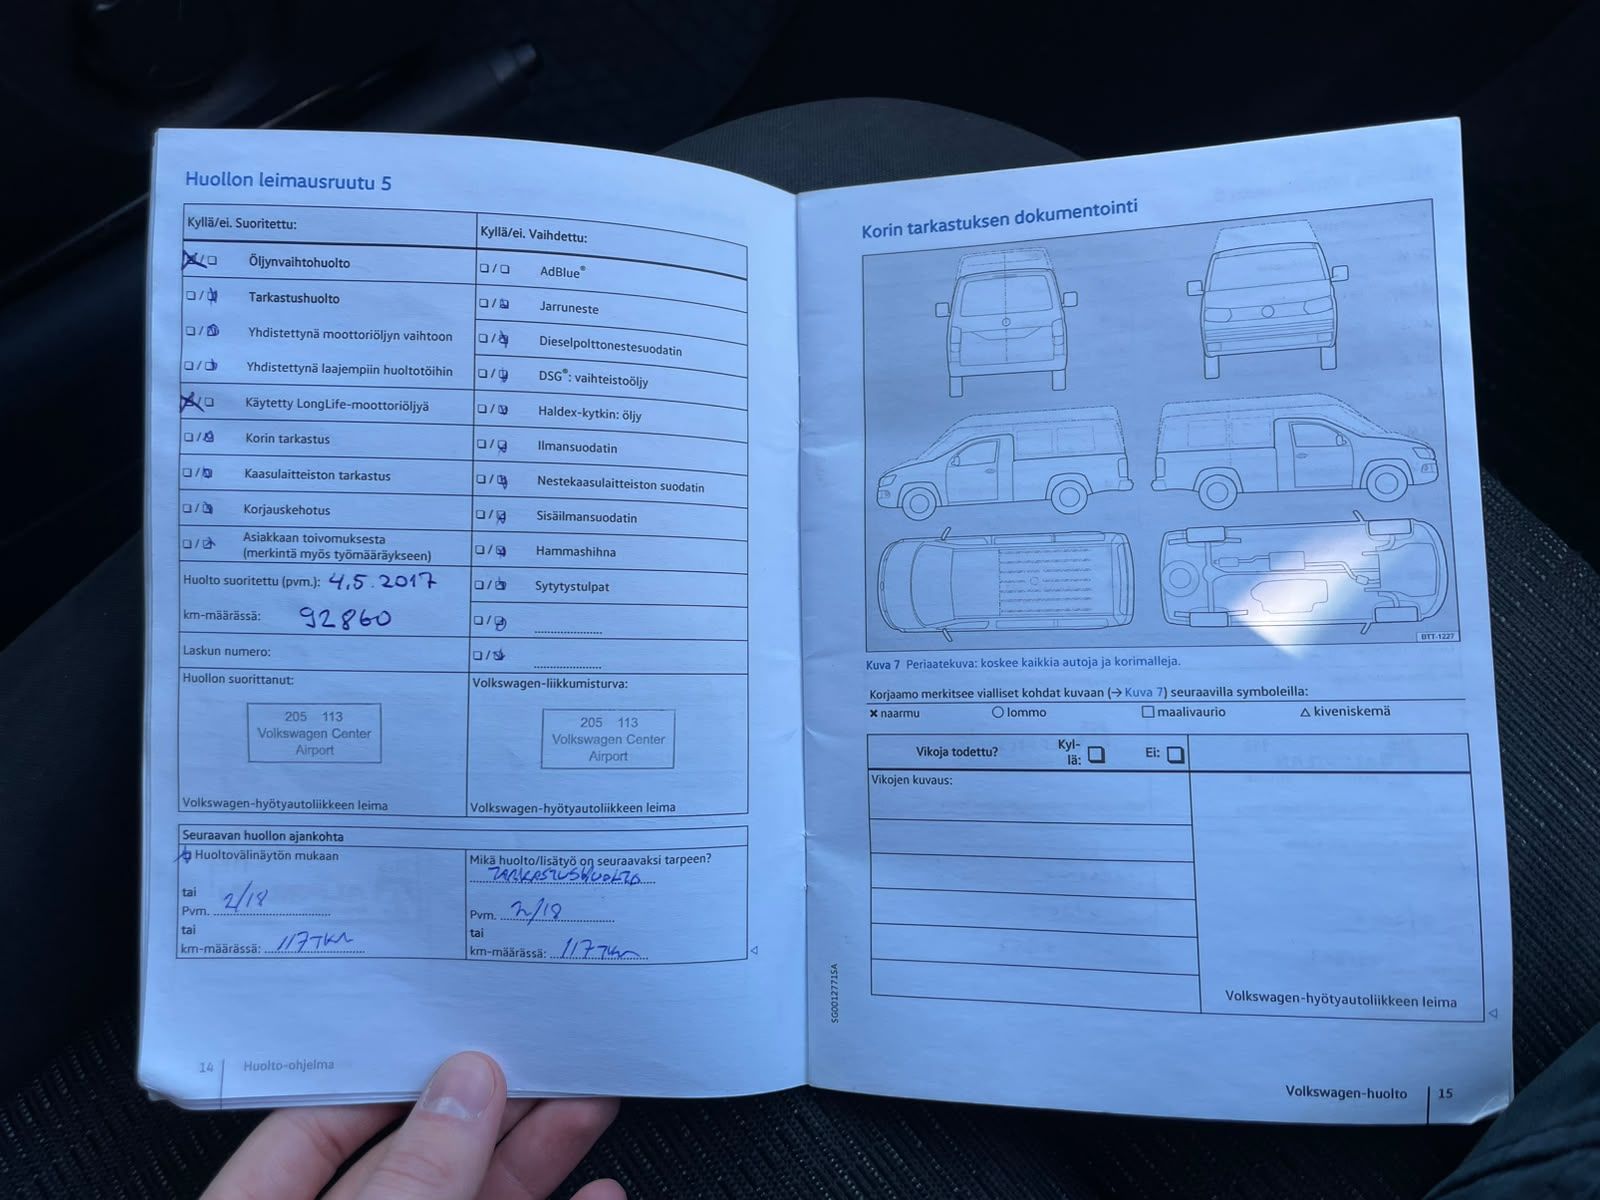 Huollon leimausruutu 5
Kyllä/ei. Suoritettu:
Öljynvaihtohuolto
Tarkastushuolto
Yhdistettynä moottoriöljyn vaihtoon
Yhdistettynä laajempiin huoltotöihin
Käytetty LongLife-moottoriöljyä
Korin tarkastus
Kaasulaitteiston tarkastus
Korjauskehotus
Asiakkaan toivomuksesta
(merkintä myös työmääräykseen)
Huolto suoritettu (pvm.): 4.5.2017
km-määrässä: 92860
Laskun numero:
Huollon suorittanut:
205 113
Volkswagen Center
Airport
Volkswagen-hyötyautoliikkeen leima
Kyllä/ei. Vaihdettu:
AdBlue®
Jarruneste
Dieselpolttonestesuodatin
DSG®: vaihteistoöljy
Haldex-kytkin: öljy
Ilmansuodatin
Nestekaasulaitteiston suodatin
Sisäilmansuodatin
Hammashihna
Sytytystulpat
Volkswagen-liikkumisturva:
205 113
Volkswagen Center
Airport
Volkswagen-hyötyautoliikkeen leima
Seuraavan huollon ajankohta
Huoltovälinäytön mukaan
tai
Pvm. 2/18
tai
km-määrässä: 117TKM
Mikä huolto/lisätyö on seuraavaksi tarpeen?
TARKASTUSHUOLTO
Pvm. 2/18
tai
km-määrässä: 117TKM
14 Huolto-ohjelma
Korin tarkastuksen dokumentointi
BTT-1227
Kuva 7 Periaatekuva: koskee kaikkia autoja ja korimalleja.
Korjaamo merkitsee vialliset kohdat kuvaan (→ Kuva 7) seuraavilla symboleilla:
naarmu lommo maalivaurio kiveniskemä
Vikoja todettu? Kyl-
lä: Ei:
Vikojen kuvaus:
Volkswagen-hyötyautoliikkeen leima
SG0012771SA
Volkswagen-huolto 15